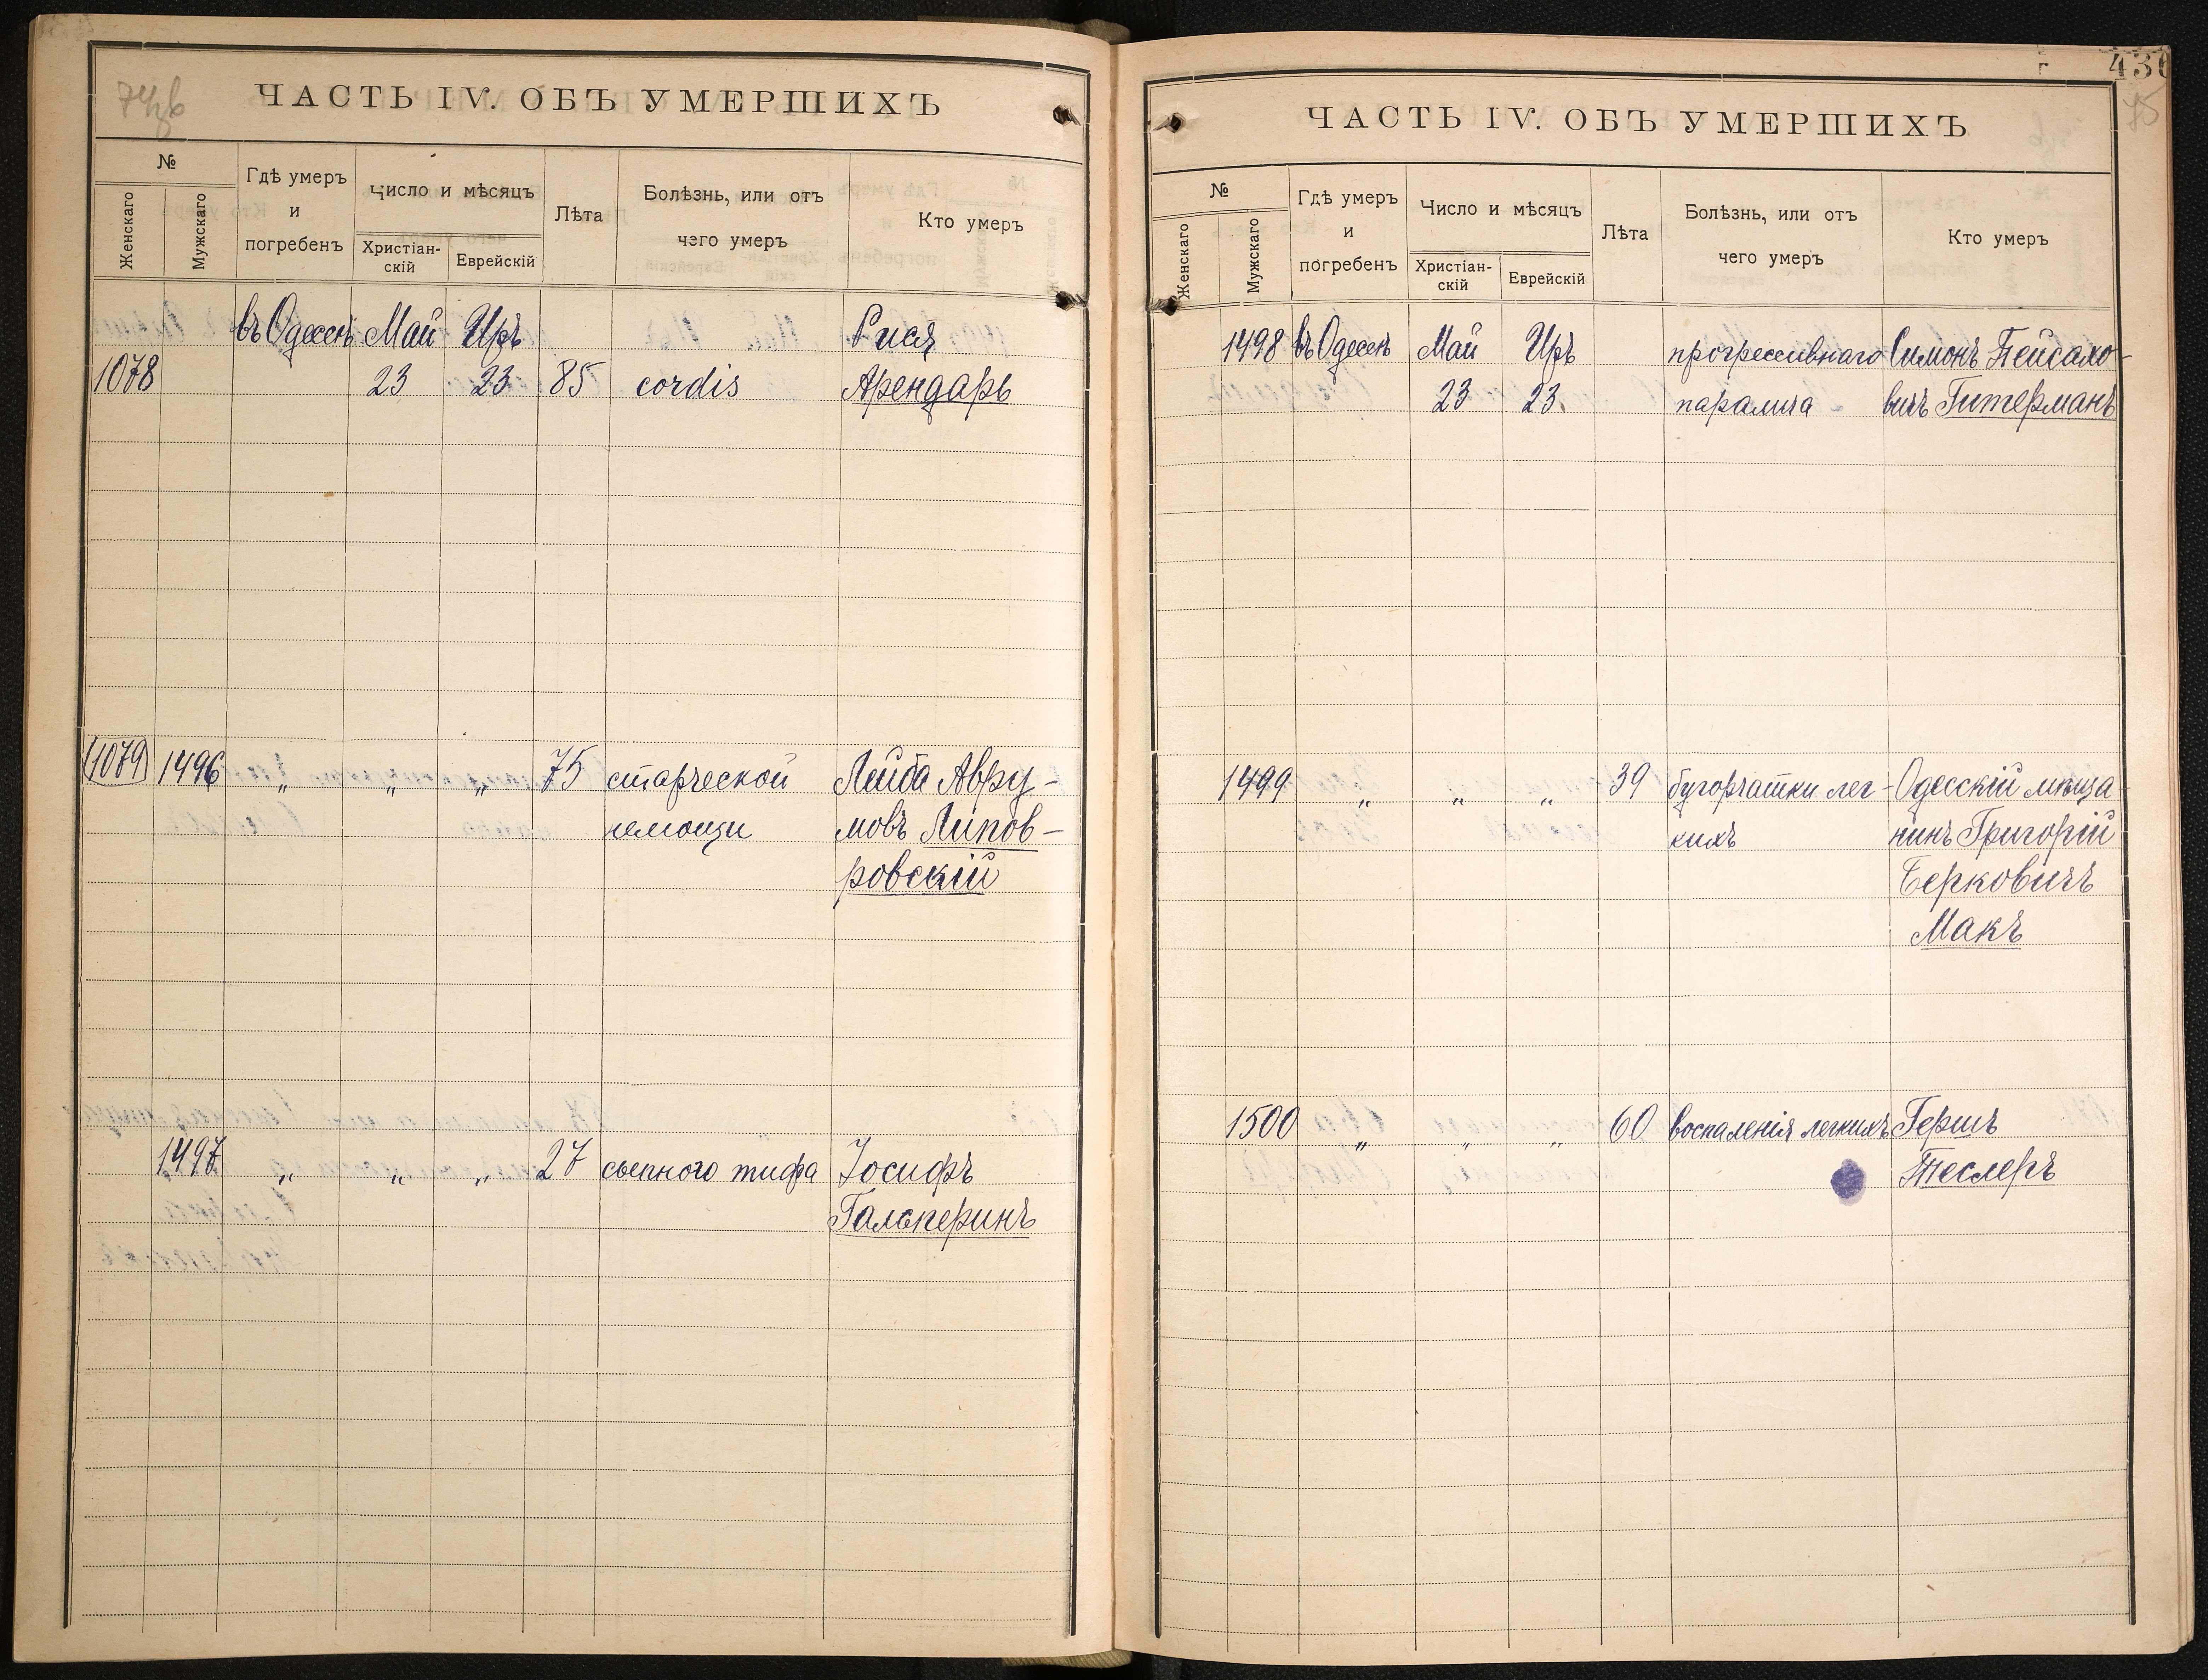 74об
ЧАСТЬ IV. ОБЪ УМЕРШИХЪ
№
Женскаго
Мужскаго
Гдѣ умеръ
и
погребенъ
Число и мѣсяцъ
Христіан-
скій
Еврейскій
Лѣта
Болѣзнь, или отъ
чего умеръ
Кто умеръ
въ Одессѣ Май Иръ Рися
1078 23 23 85 cordis Арендарь
1079 1496 „ „ „ 75 старческой Лейба Авру-
немощи мовъ Липов-
ровскій
1497 „ „ „ 27 сыпного тифа Іосифъ
Гальперинъ
430
75
ЧАСТЬ IV. ОБЪ УМЕРШИХЪ
№
Женскаго
Мужскаго
Гдѣ умеръ
и
погребенъ
Число и мѣсяцъ
Христіан-
скій
Еврейскій
Лѣта
Болѣзнь, или отъ
чего умеръ
Кто умеръ
1498 въ Одессѣ Май Иръ прогрессивнаго Симонъ Пейсахо-
23 23 паралича вичъ Гитерманъ
1499 „ „ „ 39 бугорчатки лег- Одесскій мѣща
кихъ нинъ Григорій
Берковичъ
Макъ
1500 „ „ „ 60 воспаленія легкихъ Гершъ
Теслеръ